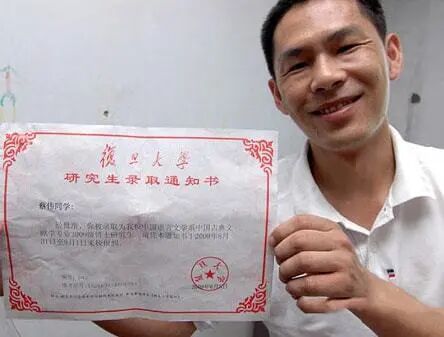 復旦大學
研究生录取通知书
蔡伟同学:
经批准,你被录取为我校中国语言文学系中国古典文
献学专业2009级博士研究生,请凭本通知书于2009年8月
31日至9月1日来校报到。
编号: